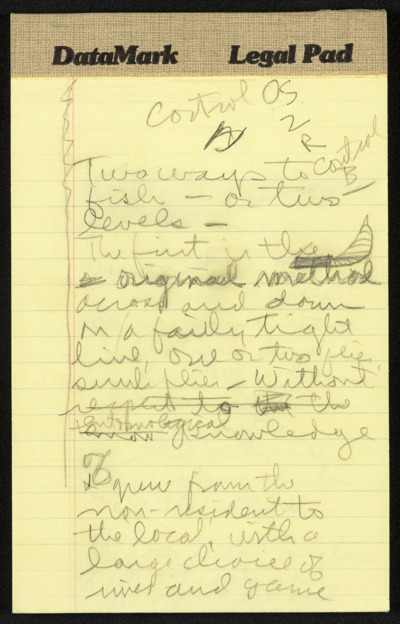 DataMark Legal Pad
Control OS
2
R
Control
B
Two ways to
fish — or two
levels —
The first is the
original method
across and down
on a fairly tight
line, one or two flies
sunk flies — Without
respect to the
entomological
knowledge
grew from the
non-resident to
the local, with a
large choice of
river and game